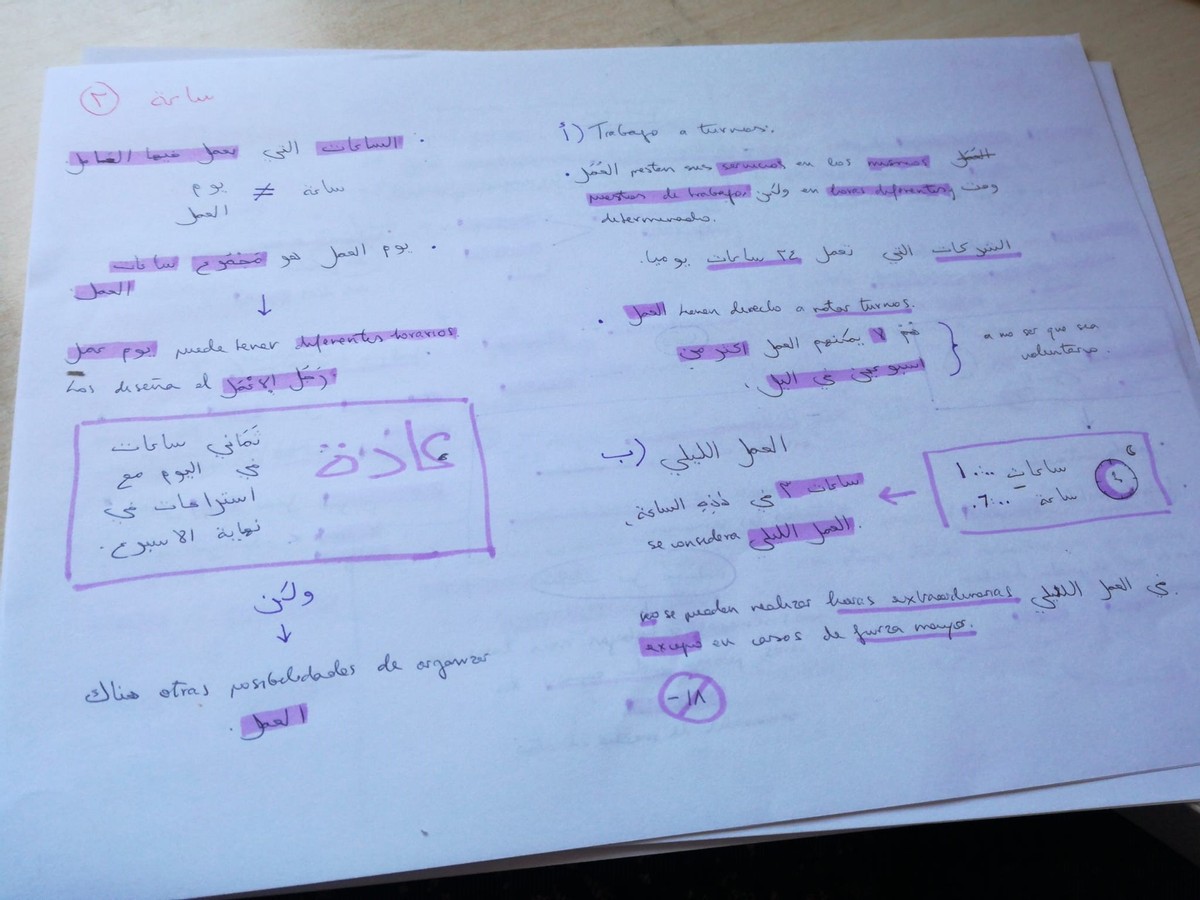 ٢ ساعة
. الساعات التي يعمل فيها العامل
ساعة ≠ يوم
العمل
. يوم العمل هو مجموع ساعات
العمل
↓
يوم عمل puede tener diferentes horarios
Los diseña el
عادة
ثماني ساعات
في اليوم مع
استراحات في
نهاية الاسبوع.
ولكن
↓
هناك otras posibilidades de organizar
العمل.
أ) Trabajo a turnos:
. العمل prestan sus servicios en los mismos
puestos de trabajo, ولكن en horas diferentes, وقت
determinado.
الشركات التي تعمل ٢٤ ساعات يوميا.
. العمل tienen derecho a rotar turnos.
هم لا يمكنهم العمل اكثر من
اسبوعين في اليل.
a no ser que sea
voluntario.
ب) العمل الليلي
ساعات ١٠:٠٠
ساعة ٠٦:٠٠
←
ساعات ٣ في هذه الساعة,
se considera العمل الليلي.
في العمل الليلي no se pueden realizar horas extraordinarias
excepto en casos de fuerza mayor.
-١٨